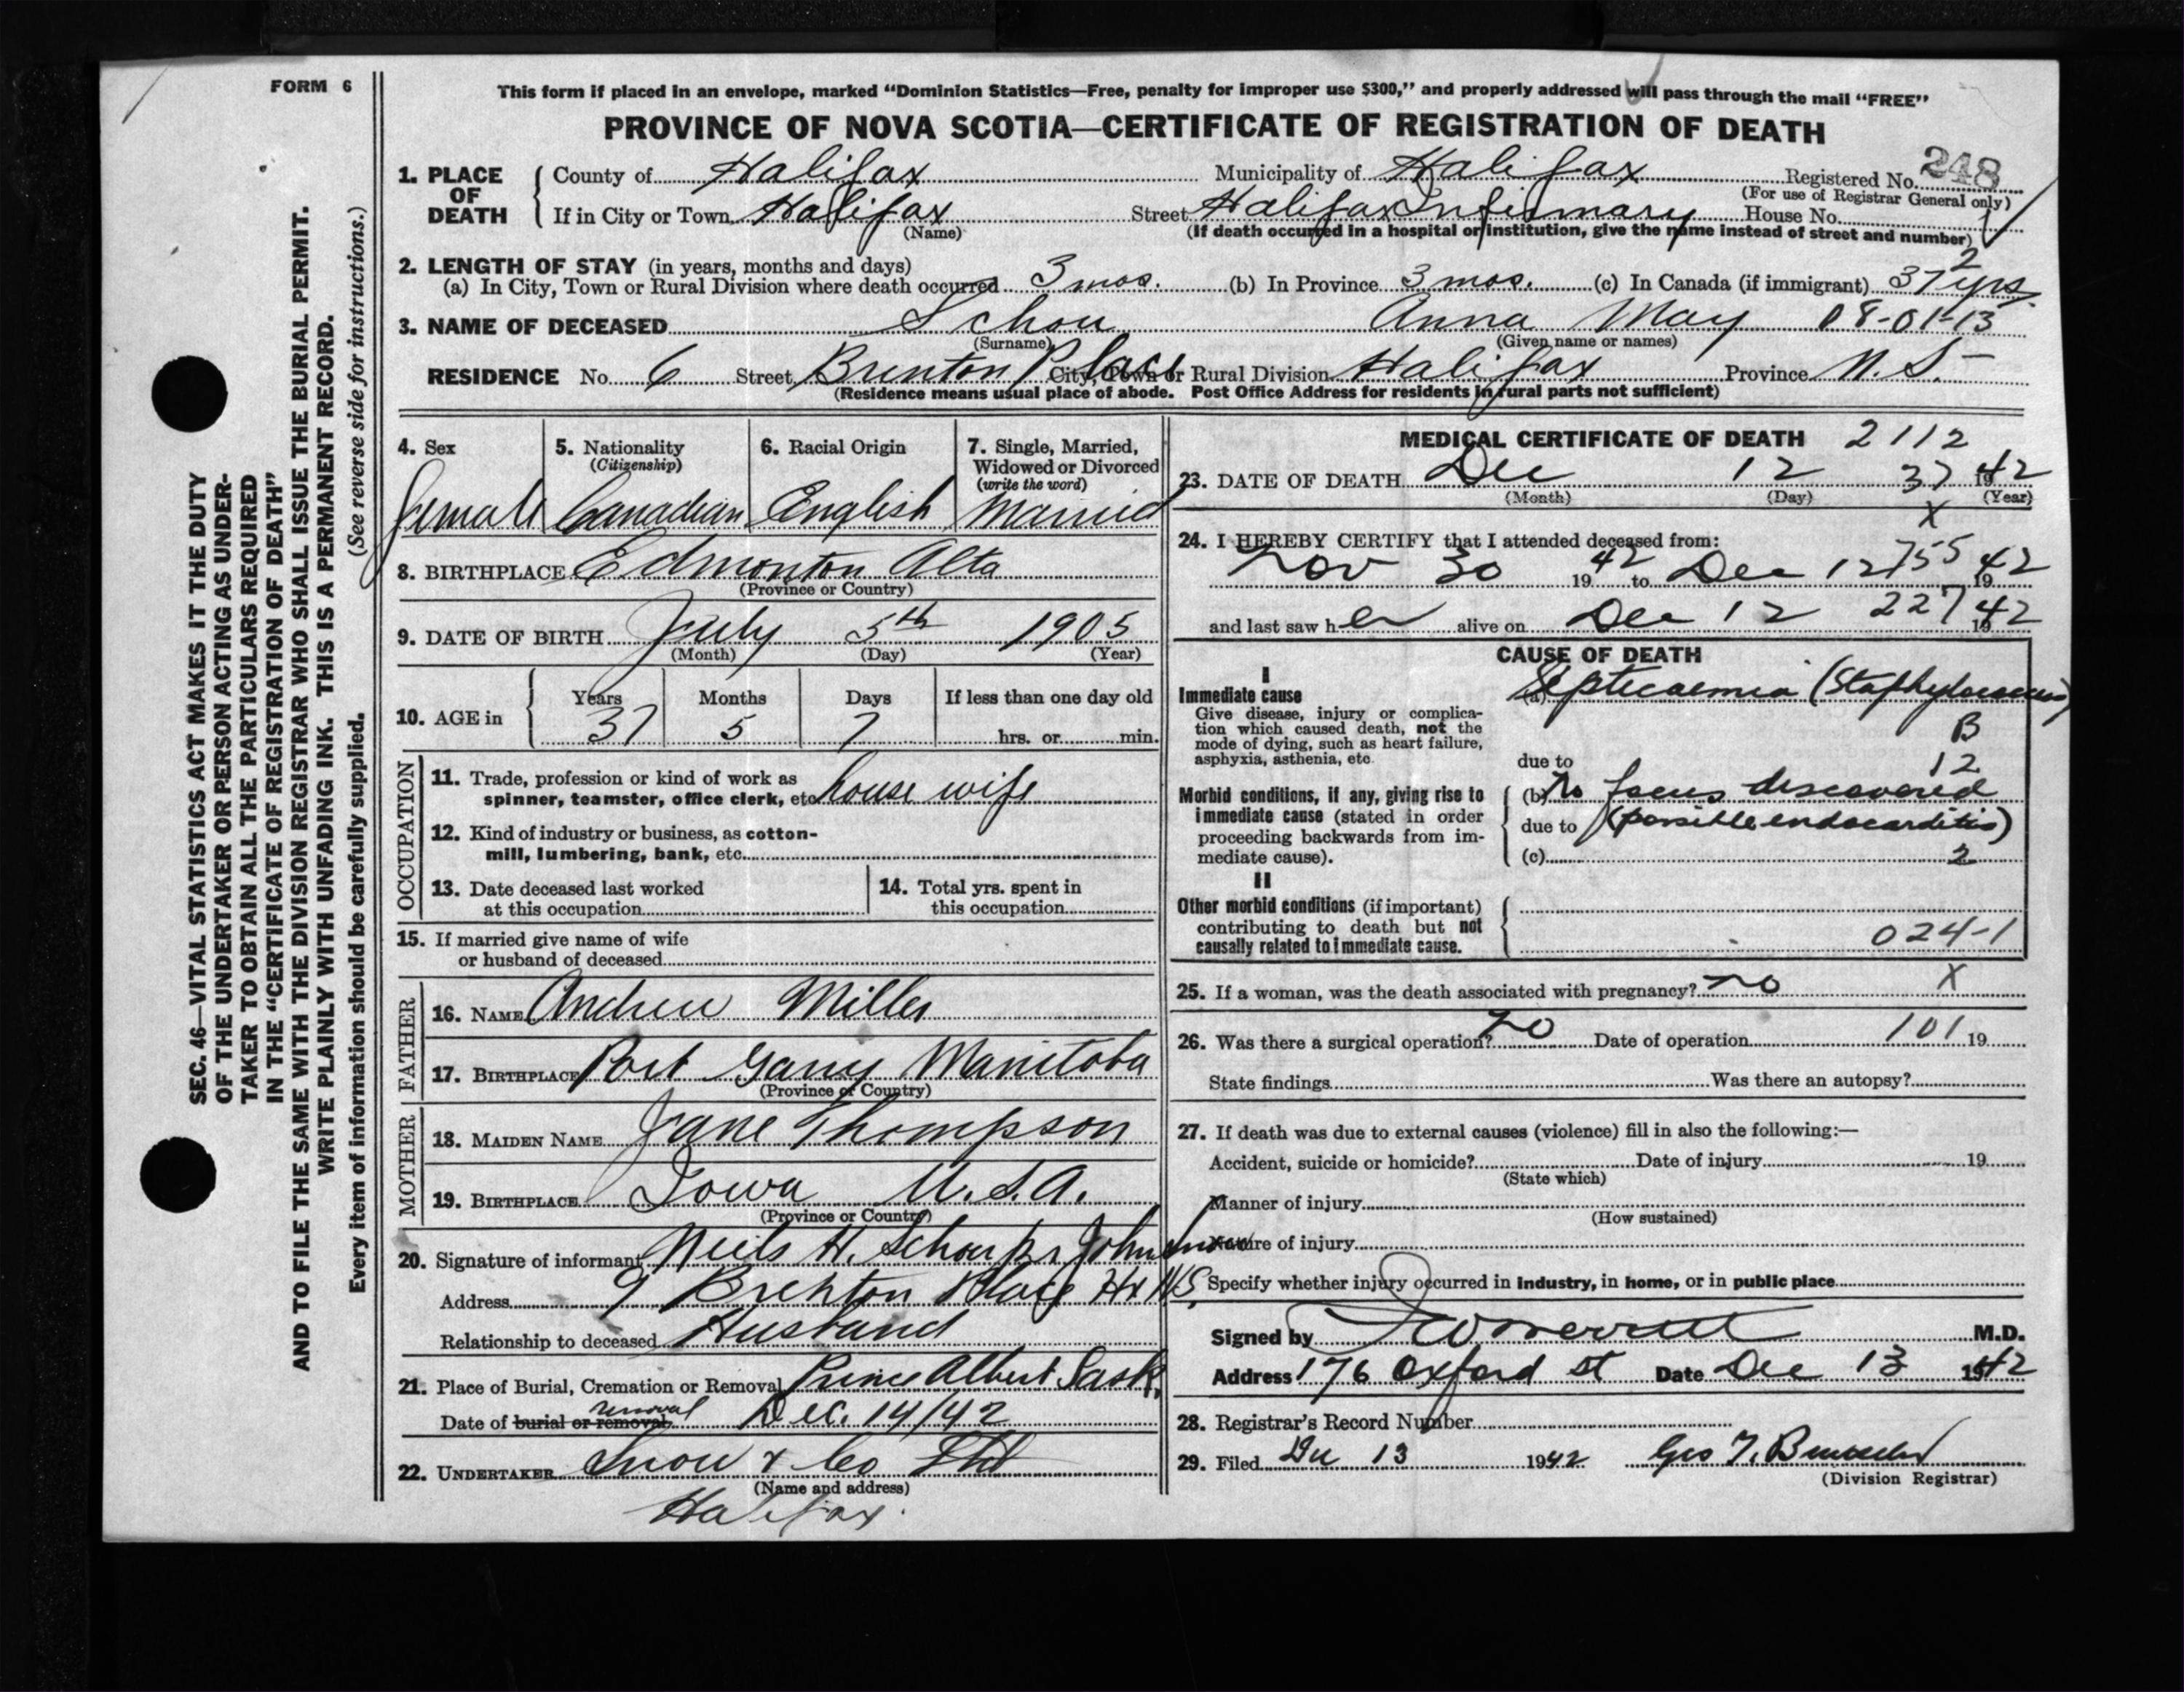 FORM 6
This form if placed in an envelope, marked “Dominion Statistics—Free, penalty for improper use $300,” and properly addressed will pass through the mail “FREE”
PROVINCE OF NOVA SCOTIA—CERTIFICATE OF REGISTRATION OF DEATH
1. PLACE OF DEATH
County of Halifax Municipality of Halifax Registered No. 248
(For use of Registrar General only)
If in City or Town Halifax Street Halifax Infirmary House No.
(Name) (If death occurred in a hospital or institution, give the name instead of street and number)
2. LENGTH OF STAY (in years, months and days) 2
(a) In City, Town or Rural Division where death occurred 3 mos. (b) In Province 3 mos. (c) In Canada (if immigrant) 37 yrs.
3. NAME OF DECEASED Schou Anna May 08-01-13
(Surname) (Given name or names)
RESIDENCE No. 6 Street Brenton Place City, Town or Rural Division Halifax Province N.S.
(Residence means usual place of abode. Post Office Address for residents in rural parts not sufficient)
4. Sex
Female
5. Nationality
(Citizenship)
Canadian
6. Racial Origin
English
7. Single, Married,
Widowed or Divorced
(write the word)
Married
8. BIRTHPLACE Edmonton Alta
(Province or Country)
9. DATE OF BIRTH July 5th 1905
(Month) (Day) (Year)
10. AGE in
Years Months Days If less than one day old
37 5 7 hrs. or min.
OCCUPATION
11. Trade, profession or kind of work as
spinner, teamster, office clerk, etc. house wife
12. Kind of industry or business, as cotton-
mill, lumbering, bank, etc.
13. Date deceased last worked
at this occupation
14. Total yrs. spent in
this occupation
15. If married give name of wife
or husband of deceased
FATHER
16. NAME Andrew Miller
17. BIRTHPLACE Port Garry Manitoba
(Province or Country)
MOTHER
18. MAIDEN NAME Jane Thompson
19. BIRTHPLACE Iowa U.S.A.
(Province or Country)
20. Signature of informant Niels H. Schou
Address 9 Brenton Place Hx N.S.
Relationship to deceased Husband
21. Place of Burial, Cremation or Removal Prince Albert Sask.
removal
Date of burial or removal Dec. 14/42
22. UNDERTAKER Snow & Co Ltd
(Name and address)
Halifax.
MEDICAL CERTIFICATE OF DEATH 2112
23. DATE OF DEATH Dec 12 37 1942
(Month) (Day) (Year)
X
24. I HEREBY CERTIFY that I attended deceased from:
Nov 30 1942 to Dec 12 755 1942
and last saw her alive on Dec 12 227 1942
CAUSE OF DEATH
I
Immediate cause
Give disease, injury or complica-
tion which caused death, not the
mode of dying, such as heart failure,
asphyxia, asthenia, etc.
(a) Septicaemia (Staphylococcus)
B
due to 12
Morbid conditions, if any, giving rise to
immediate cause (stated in order
proceeding backwards from im-
mediate cause).
(b) No focus discovered
due to (possible endocarditis)
(c) 2
II
Other morbid conditions (if important)
contributing to death but not
causally related to immediate cause.
024-1
25. If a woman, was the death associated with pregnancy? no X
26. Was there a surgical operation? no Date of operation 101 19
State findings Was there an autopsy?
27. If death was due to external causes (violence) fill in also the following:—
Accident, suicide or homicide? Date of injury 19
(State which)
Manner of injury
(How sustained)
Nature of injury
Specify whether injury occurred in industry, in home, or in public place
Signed by M.D.
Address 176 Oxford st Date Dec 13 1942
28. Registrar's Record Number
29. Filed Dec 13 1942 Geo
(Division Registrar)
SEC. 46—VITAL STATISTICS ACT MAKES IT THE DUTY
OF THE UNDERTAKER OR PERSON ACTING AS UNDER-
TAKER TO OBTAIN ALL THE PARTICULARS REQUIRED
IN THE “CERTIFICATE OF REGISTRATION OF DEATH”
AND TO FILE THE SAME WITH THE DIVISION REGISTRAR WHO SHALL ISSUE THE BURIAL PERMIT.
WRITE PLAINLY WITH UNFADING INK. THIS IS A PERMANENT RECORD.
Every item of information should be carefully supplied. (See reverse side for instructions.)